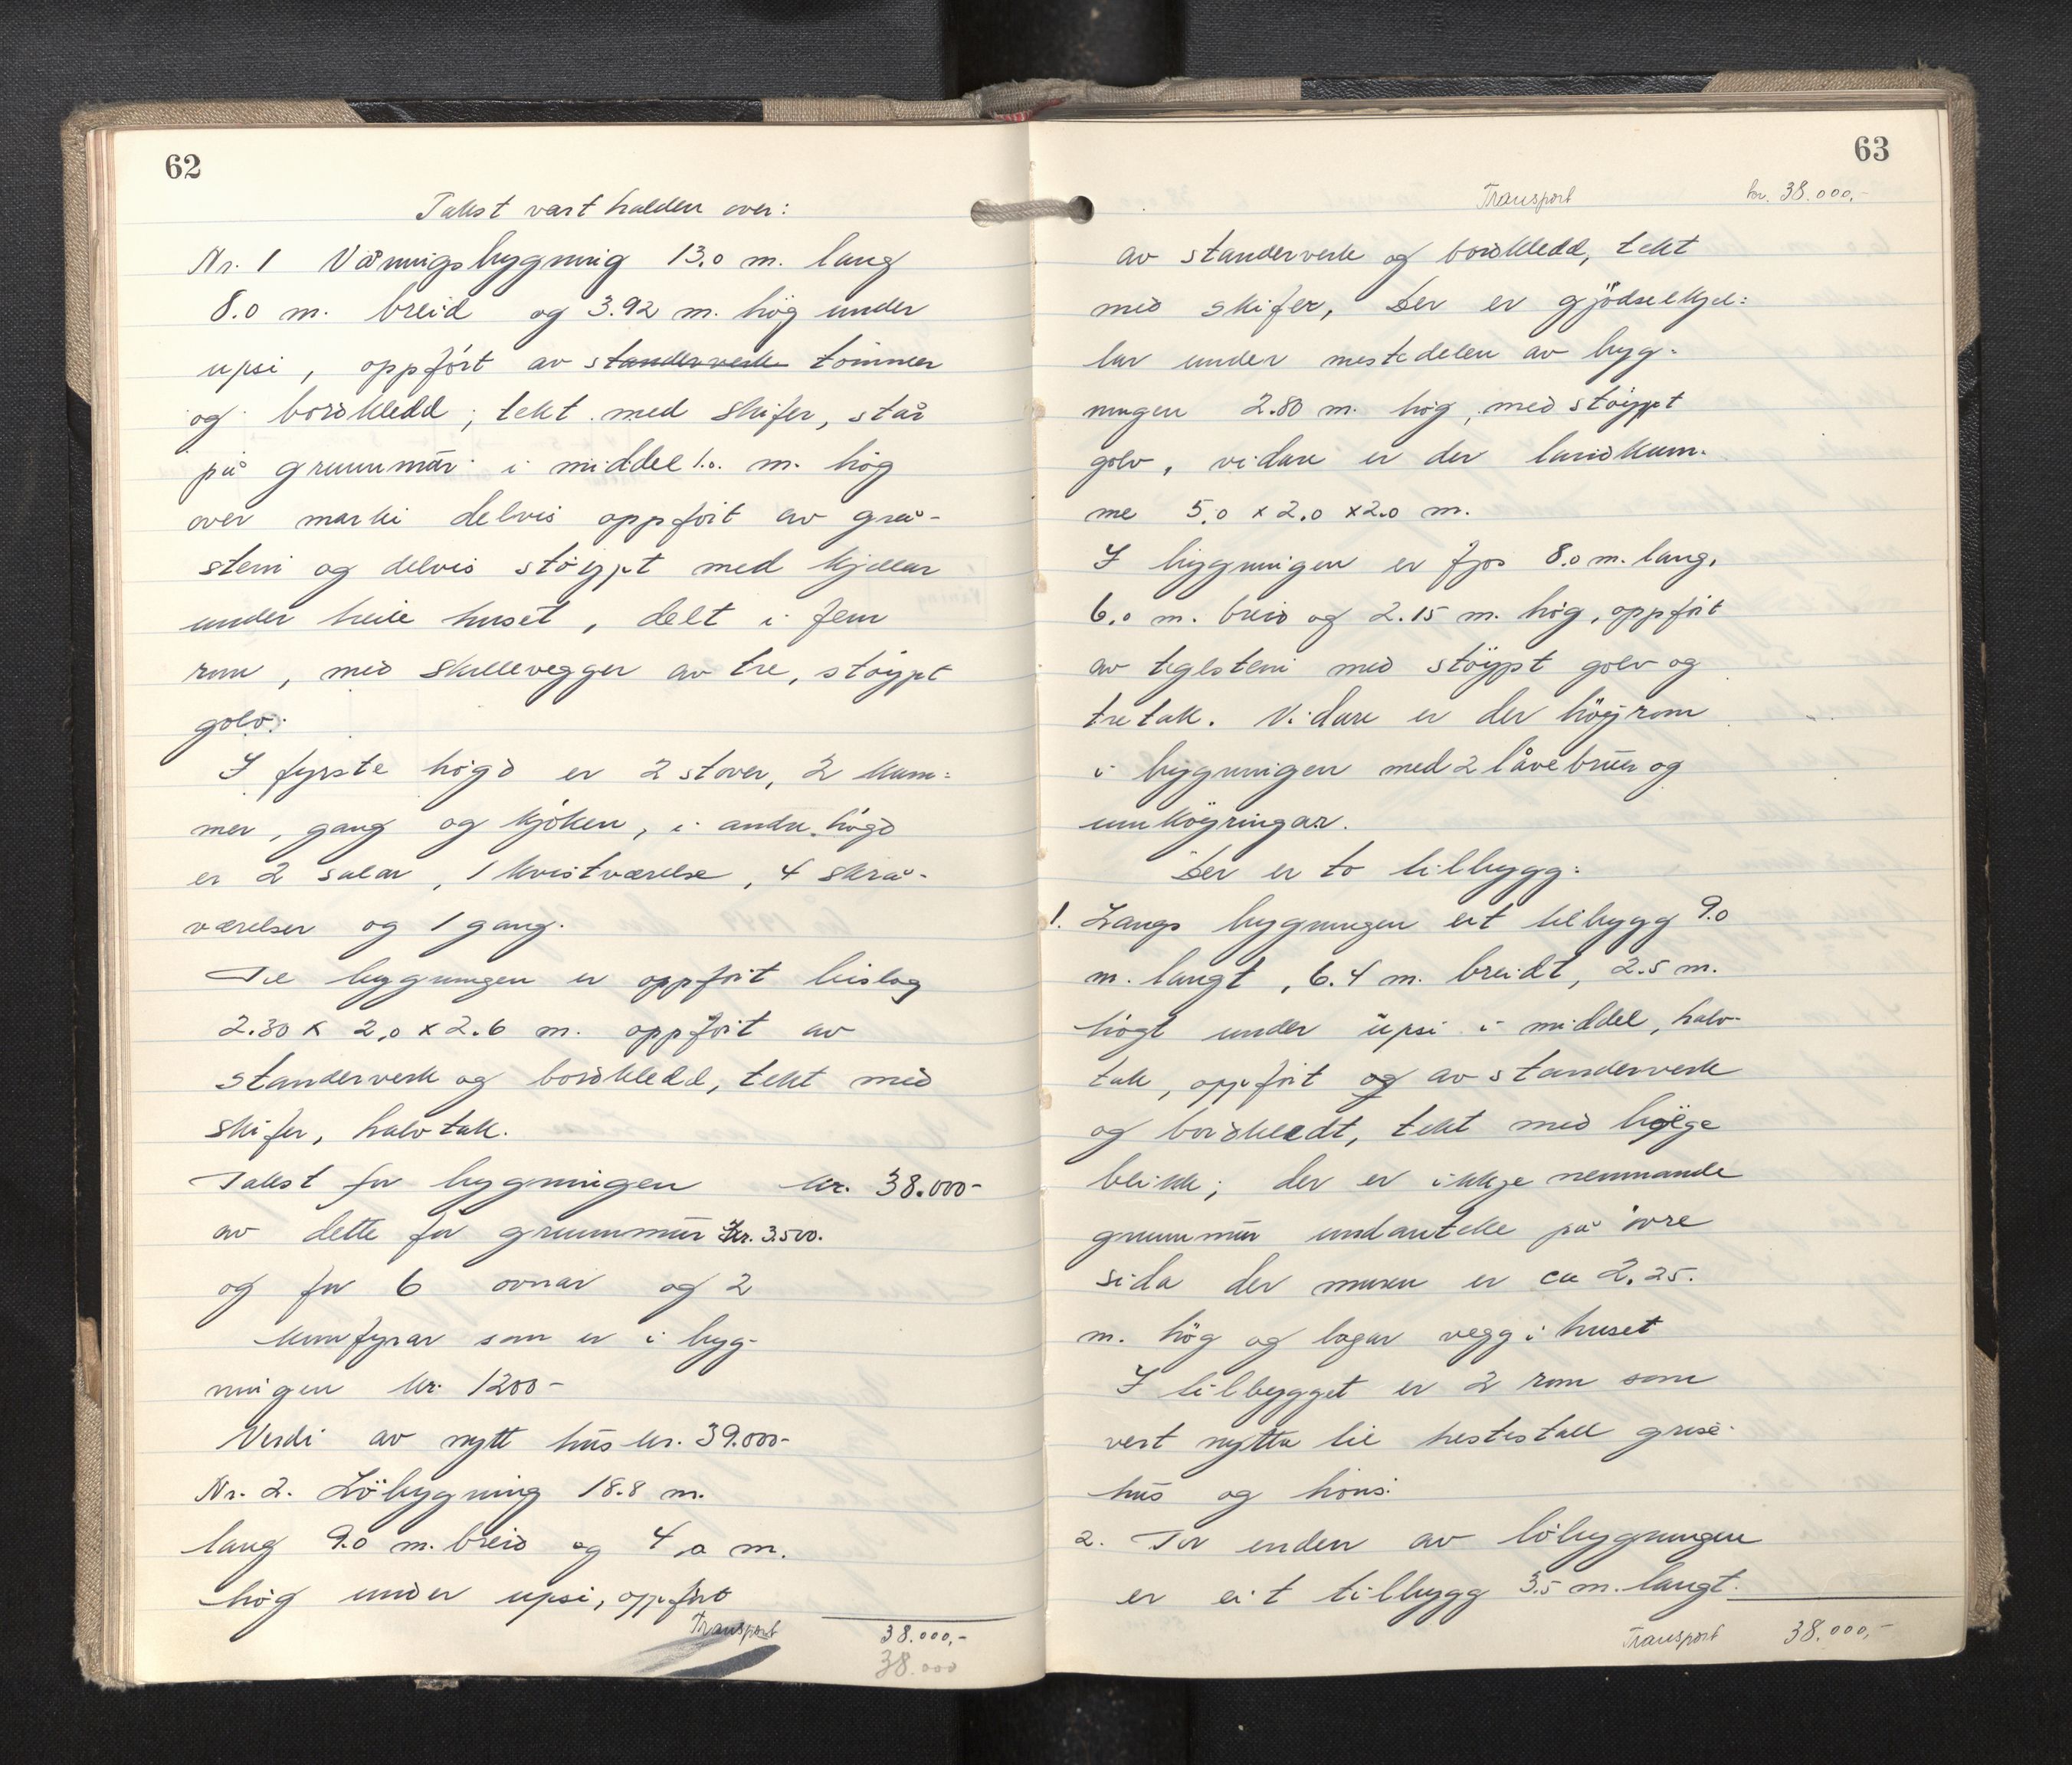 62
Takst vart halden over:
Nr. 1 Våningsbygning 13.0 m. lang
8.0 m. breid og 3.92 m. hög under
upsi, oppfört av standerverk tömmer
og bordkledd, tekt med skifer, står
på grunnmur i middel 1.0. m. hög
over marki delvis oppfört av grå-
stein og delvis stöypt med kjellar
under heile huset, delt i fem
rom, med skillevegger av tre, stöypt
golv.
I fyrste högd er 2 stover, 2 kam-
mer, gang og kjöken, i andre högd
er 2 salar, 1 kvistværelse, 4 skrå-
værelser og 1 gang.
Til bygningen er oppfört bislag
2.30 x 2.0 x 2.6 m. oppfört av
standerverk og bordkledd, tekt med
skifer, halvtak.
Takst for bygningen kr. 38.000-
av dette for grunnmur kr. 3.500.
og for 6 ovnar og 2
komfyrar som er i byg-
ningen kr. 1200-
Verdi av nytt hus kr. 39.000-
Nr. 2. Löbygning 18.8 m.
lang 9.0 m. breid og 4.0 m.
hög under upsi, oppfört
Transport 38.000,-
38.000
63
Transport kr. 38.000,-
av standerverk og bordkledd, tekt
med skifer, Der er gjödselkjel-
lar under mestedelen av byg-
ningen 2.80 m. hög, med stöypt
golv, vidare er der landkum-
me 5.0 x 2.0 x 2.0 m.
I bygningen er fjos 8.0 m. lang,
6.0 m. breid og 2.15 m. hög, oppfört
av teglstein med stöypt golv og
tretak. Vidare er der höyrom
i bygningen med 2 låvebruer og
umköyringar.
Der er to tilbygg:
1. Langs bygningen eit tilbygg 9.0
m. langt, 6.4 m. breidt, 2.5 m.
högt under upsi i middel, halv-
tak, oppfört og av standerverk
og bordkledt, tekt med bölge
blikk; der er ikkje nemnande
grunnmur undanteke på övre
sida der muren er ca 2.25.
m. hög og lagar vegg i huset
I tilbygget er 2 rom som
vert nytta til hestestall grise-
hus og höns.
2. For enden av löbygningen
er eit tilbygg 3.5 m. langt.
Transport 38.000,-